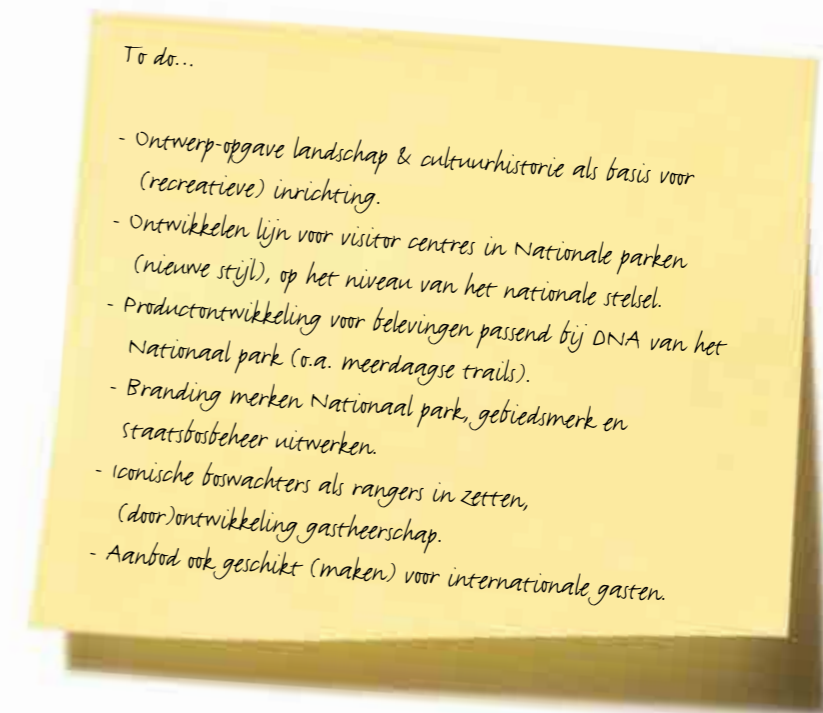 To do...
- Ontwerp-opgave landschap & cultuurhistorie als basis voor
(recreatieve) inrichting.
- Ontwikkelen lijn voor visitor centres in Nationale parken
(nieuwe stijl), op het niveau van het nationale stelsel.
- Productontwikkeling voor belevingen passend bij DNA van het
Nationaal park (o.a. meerdaagse trails).
- Branding merken Nationaal park, gebiedsmerk en
Staatsbosbeheer uitwerken.
- Iconische boswachters als rangers in zetten,
(door)ontwikkeling gastheerschap.
- Aanbod ook geschikt (maken) voor internationale gasten.